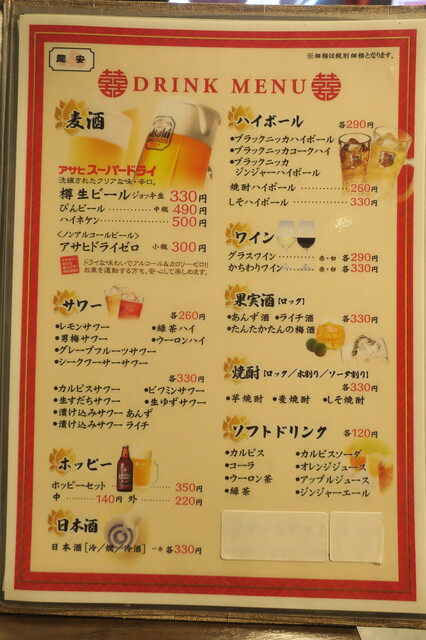 龍安
※価格は税別価格となります。
囍DRINK MENU囍
麦酒
アサヒスーパードライ
洗練されたクリアな味・辛口。
樽生ビール ジョッキ生 330円
びんビール 中瓶 490円
ハイネケン 500円
<ノンアルコールビール>
アサヒドライゼロ 小瓶 300円
ドライな味わいでアルコール&カロリーゼロ!!
お車を運転する方も、安心して楽しめます。
サワー
各260円
•レモンサワー •緑茶ハイ
•男梅サワー •ウーロンハイ
•グレープフルーツサワー
•シークワーサーサワー
各330円
•カルピスサワー •ビフィズスサワー
•生すだちサワー •生ゆずサワー
•漬け込みサワー あんず
•漬け込みサワー ライチ
ホッピー
ホッピーセット 350円
中 140円 外 220円
日本酒
日本酒[冷/燗/冷酒] 一合 各330円
ハイボール 各290円
•ブラックニッカハイボール
•ブラックニッカコークハイ
•ブラックニッカ
ジンジャーハイボール
焼酎ハイボール 260円
しそハイボール 330円
ワイン
グラスワイン 赤・白 各290円
かちわりワイン 赤・白 各330円
果実酒[ロック]
•あんず酒 •ライチ酒 各330円
•たんたかたんの梅酒
焼酎[ロック/水割り/ソーダ割り]
各330円
•芋焼酎 •麦焼酎 •しそ焼酎
ソフトドリンク 各120円
•カルピス •カルピスソーダ
•コーラ •オレンジジュース
•ウーロン茶 •アップルジュース
•緑茶 •ジンジャーエール